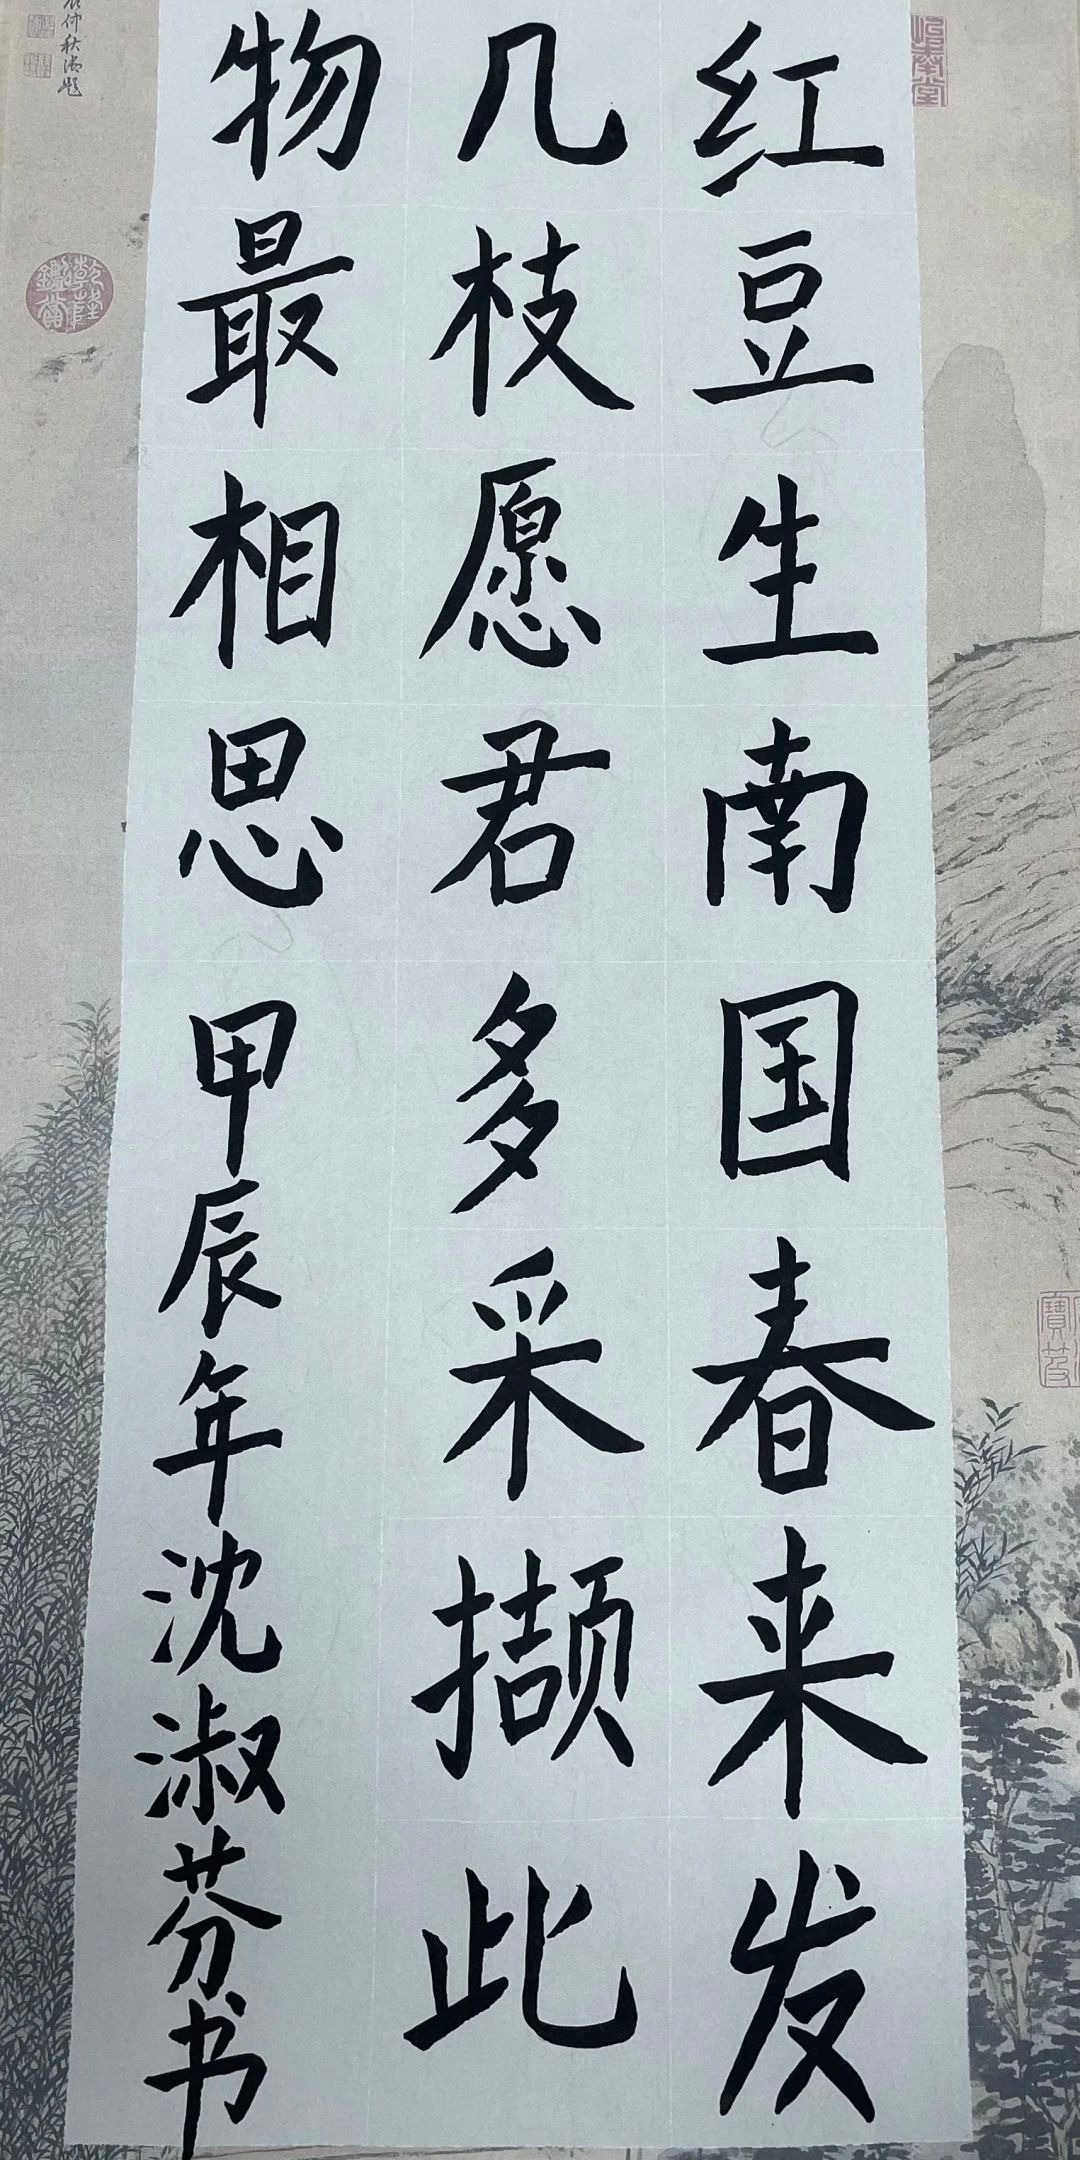 红豆生南国春来发
几枝愿君多采撷此
物最相思甲辰年沈淑芬书
乾隆御览